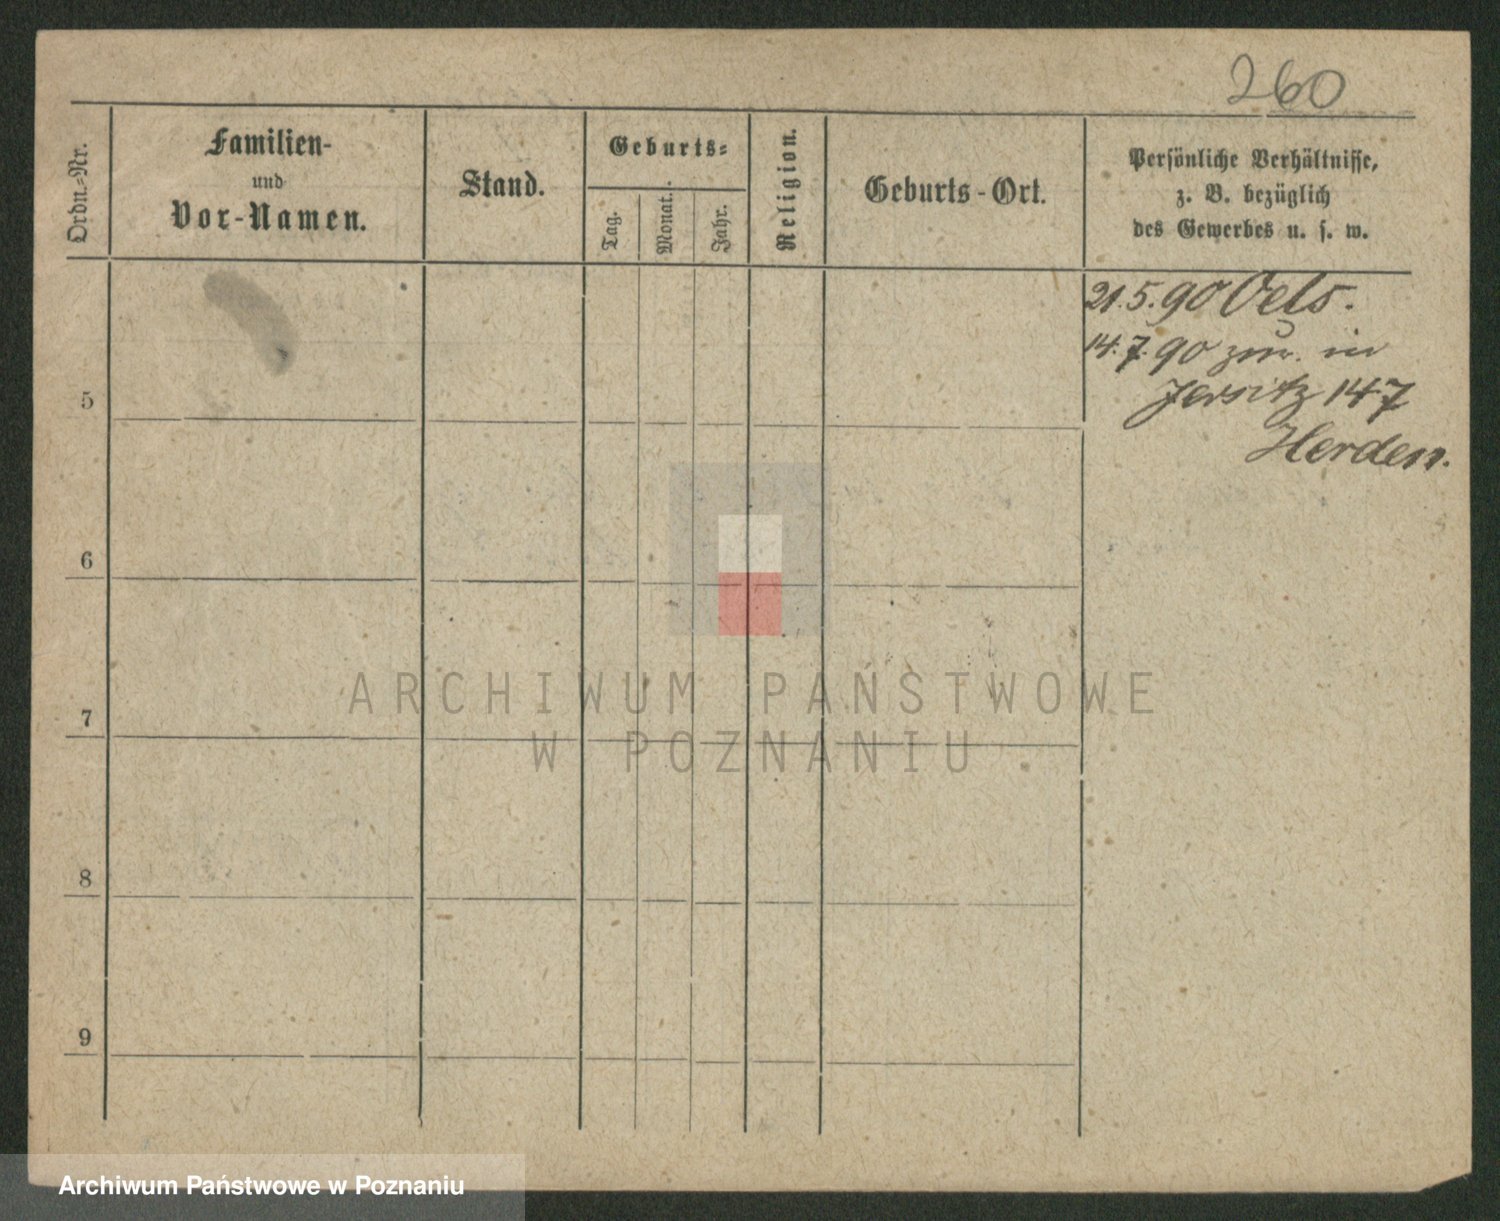 260
Ordn.-Nr.
Familien-
und
Vor-Namen.
Stand.
Geburts-
Tag.
Monat.
Jahr.
Religion.
Geburts-Ort.
Persönliche Verhältnisse,
z. B. bezüglich
des Gewerbes u. s. w.
21.5.90 Oels.
14.7.90 zur. in
Jersitz 147
Herden.
5
6
7
8
9
ARCHIWUM PAŃSTWOWE
W POZNANIU
Archiwum Państwowe w Poznaniu